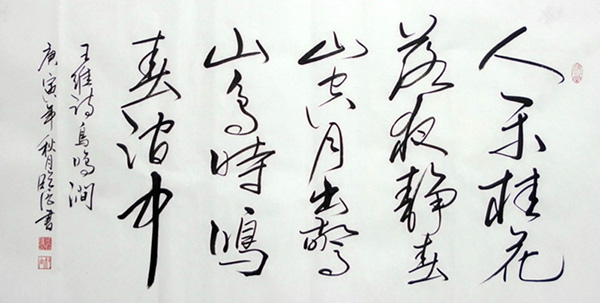 人閑桂花
落夜靜春
山空月出驚
山鳥時鳴
春澗中
王維詩鳥鳴澗
庚寅年秋月書